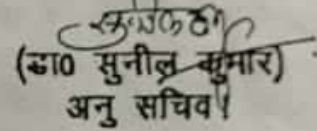 (डा0 सुनील कुमार)
अनु सचिव।